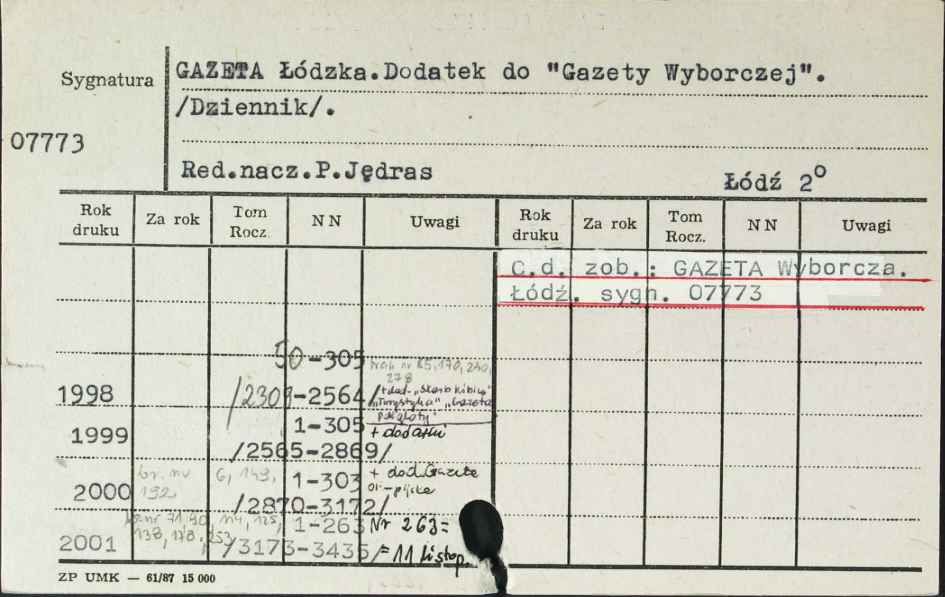 GAZETA Łódzka.Dodatek do "Gazety Wyborczej".
Sygnatura
/Dziennik/.
07773
Red.nacz.P.Jędras
Łódź 2º
Rok druku Za rok Tom Rocz. NN Uwagi Rok druku Za rok Tom Rocz. NN Uwagi
C.d. zob.: GAZETA Wyborcza.
Łódź. sygn. 07773
50-305 brak nr 85, 170, 240,
278
1998 /2309-2564/ + dod. "Skarb Kibica"
"Turystyka" "Gazeta
1-305
1999 + dodatki
/2565-2869/
br. nr 6, 149, 1-303 + dod. Gazeta
2000 192
/2870-3172/
br. nr 71, 90, 114, 125, 1-263 Nr 263 =
138, 178, 253
2001 /3173-3435/ = 11 listop.
ZP UMK — 61/87 15 000